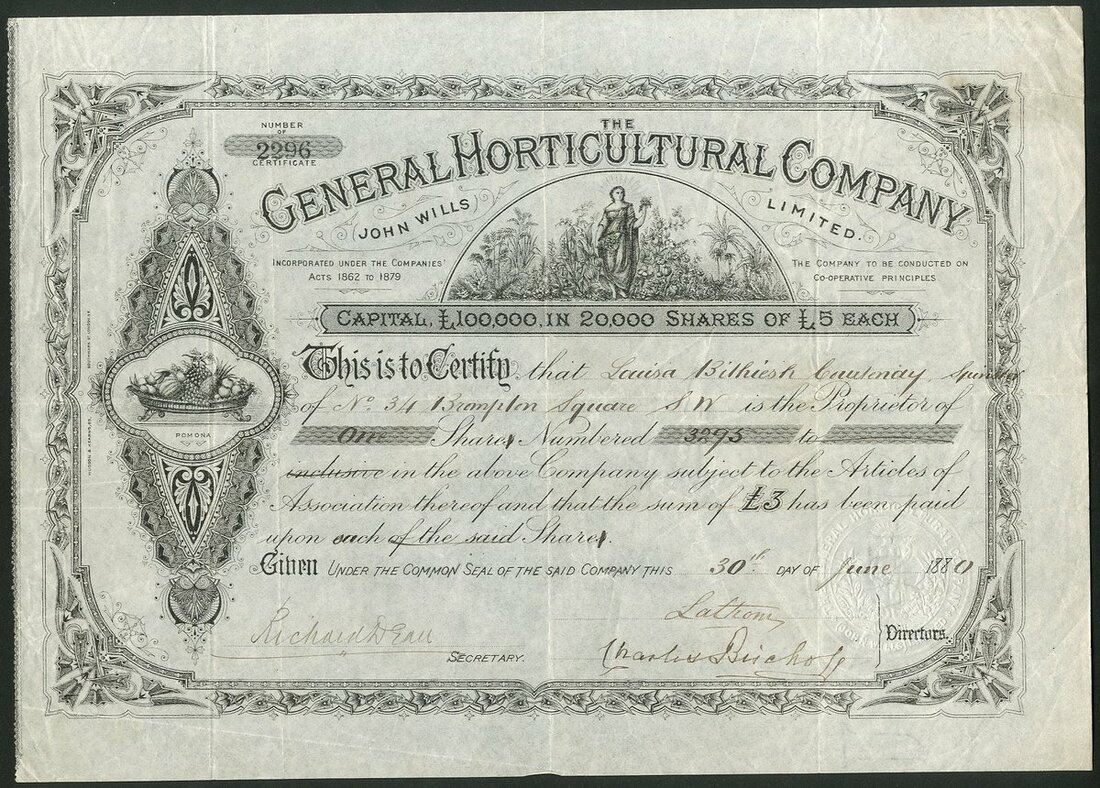 NUMBER
OF
2296
CERTIFICATE
THE
GENERAL HORTICULTURAL COMPANY
JOHN WILLS
LIMITED.
INCORPORATED UNDER THE COMPANIES'
ACTS 1862 TO 1879
THE COMPANY TO BE CONDUCTED ON
CO-OPERATIVE PRINCIPLES
CAPITAL, £100,000, IN 20,000 SHARES OF £5 EACH
This is to Certify that Louisa Courtenay, Spinster
of No. 34 Brompton Square S W is the Proprietor of
One Share, Numbered 3295 to
inclusive in the above Company subject to the Articles of
Association thereof and that the sum of £3 has been paid
upon each of the said Share.
Given UNDER THE COMMON SEAL OF THE SAID COMPANY THIS 30th DAY OF June 1880
POMONA
Lathom
Richard Dean
SECRETARY.
Charles Bischoff
Directors.